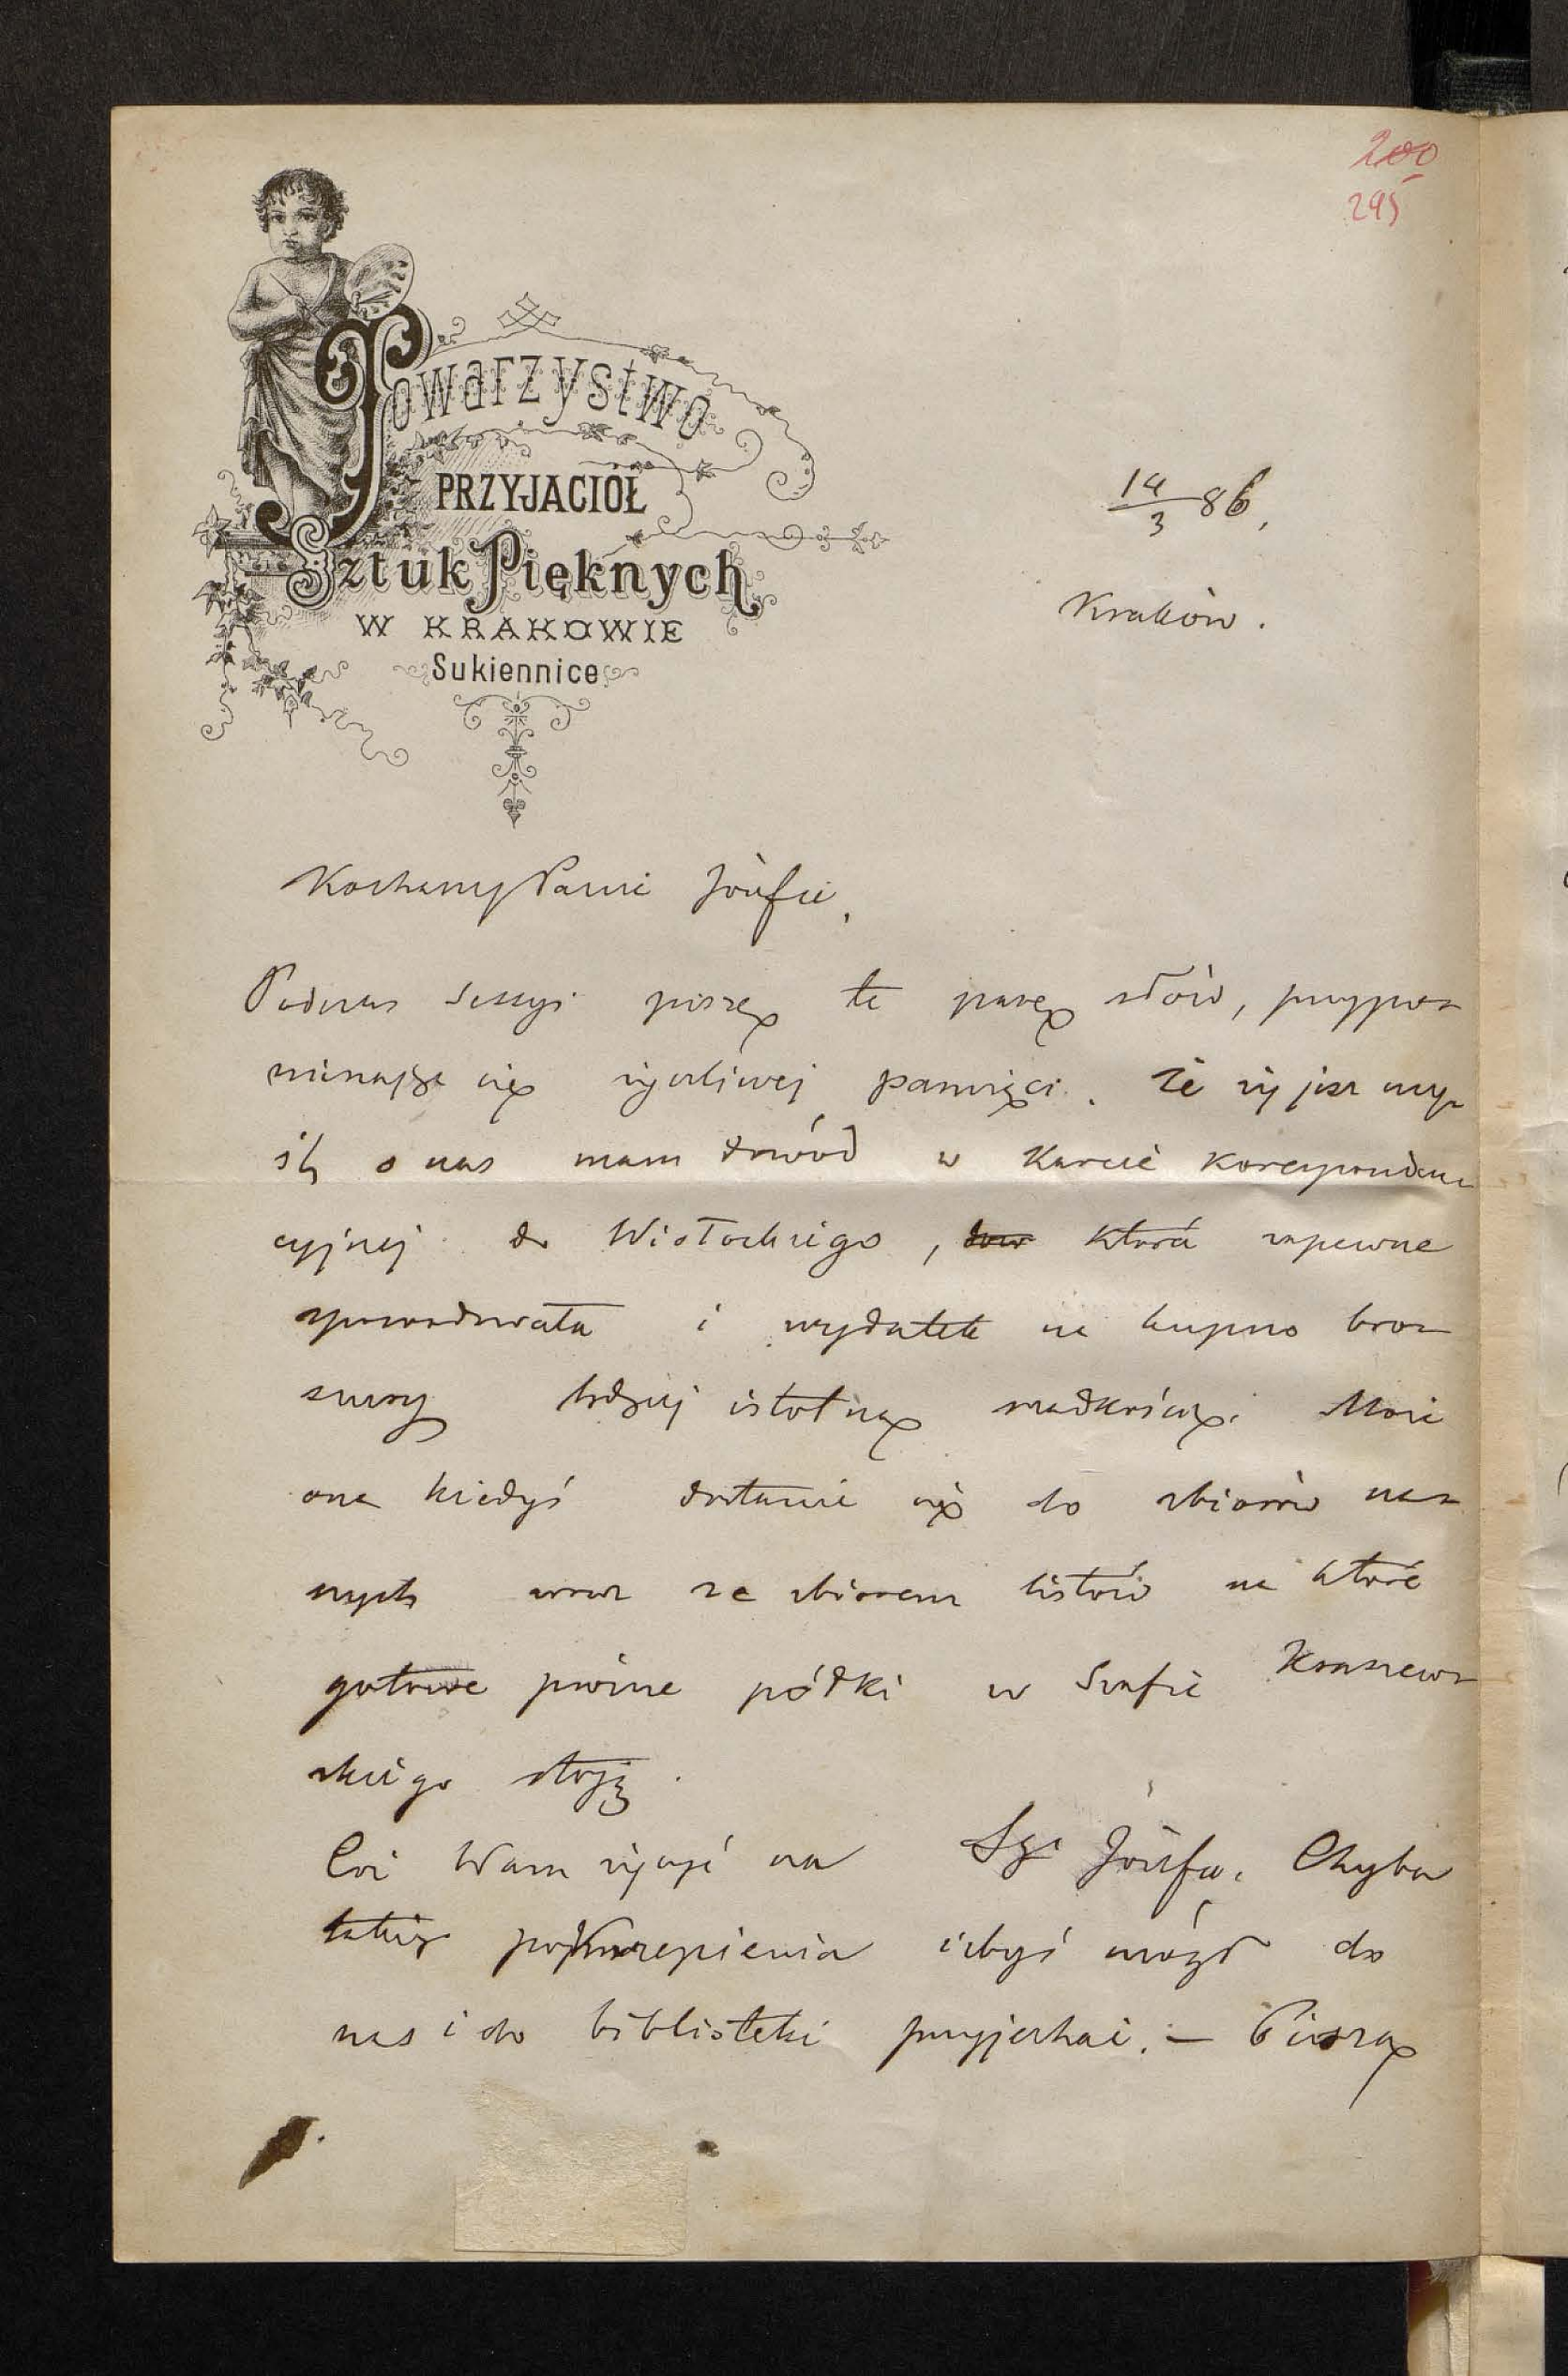 200
295
Towarzystwo
PRZYJACIÓŁ
Sztuk Pięknych
W KRAKOWIE
Sukiennice
14/3 86,
Kraków.
Kochany Panie Józefie,
Podczas sessyi piszę te parę słów, przypo-
minając się życzliwej pamięci. Że żyjesz myś-
lą o nas mam dowód w karcie korespoden-
cyjnej do Wisłockiego, która zapewne
spowodowała i wydatek na kupno bro-
szury będącej istotną rzadkością. Może
ona kiedyś dostanie się do zbiorów na-
szych wraz ze zbiorem listów na które
gotowe próżne półki w Szafie Kraszew-
skiego stoją.
Cóż Wam życzyć na Sgo Józefa. Chyba
takiego pokrzepienia iżbyś mógł do
nas i do biblioteki przyjechać. — Piszą